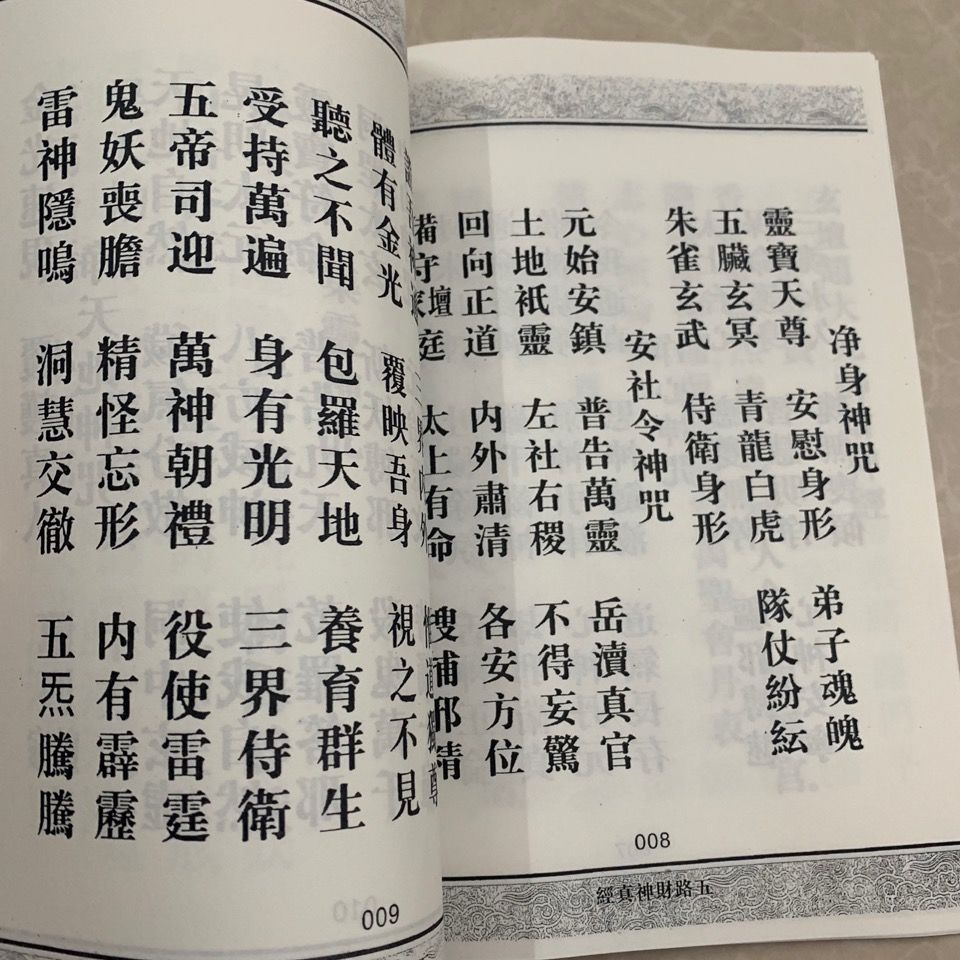 净身神咒
靈寶天尊 安慰身形 弟子魂魄
五臟玄冥 青龍白虎 隊仗紛紜
朱雀玄武 侍衛身形
安社令神咒
元始安鎮 普告萬靈 岳瀆真官
土地衹靈 左社右稷 不得妄驚
回向正道 内外肅清 各安方位
守 壇庭 太上有命 搜捕邪精
008
五路財神真經
體有金光 覆映吾身 視之不見
聽之不聞 包羅天地 養育群生
受持萬遍 身有光明 三界侍衛
五帝司迎 萬神朝禮 役使雷霆
鬼妖喪膽 精怪忘形 内有霹靂
雷神隱鳴 洞慧交徹 五炁騰騰
009